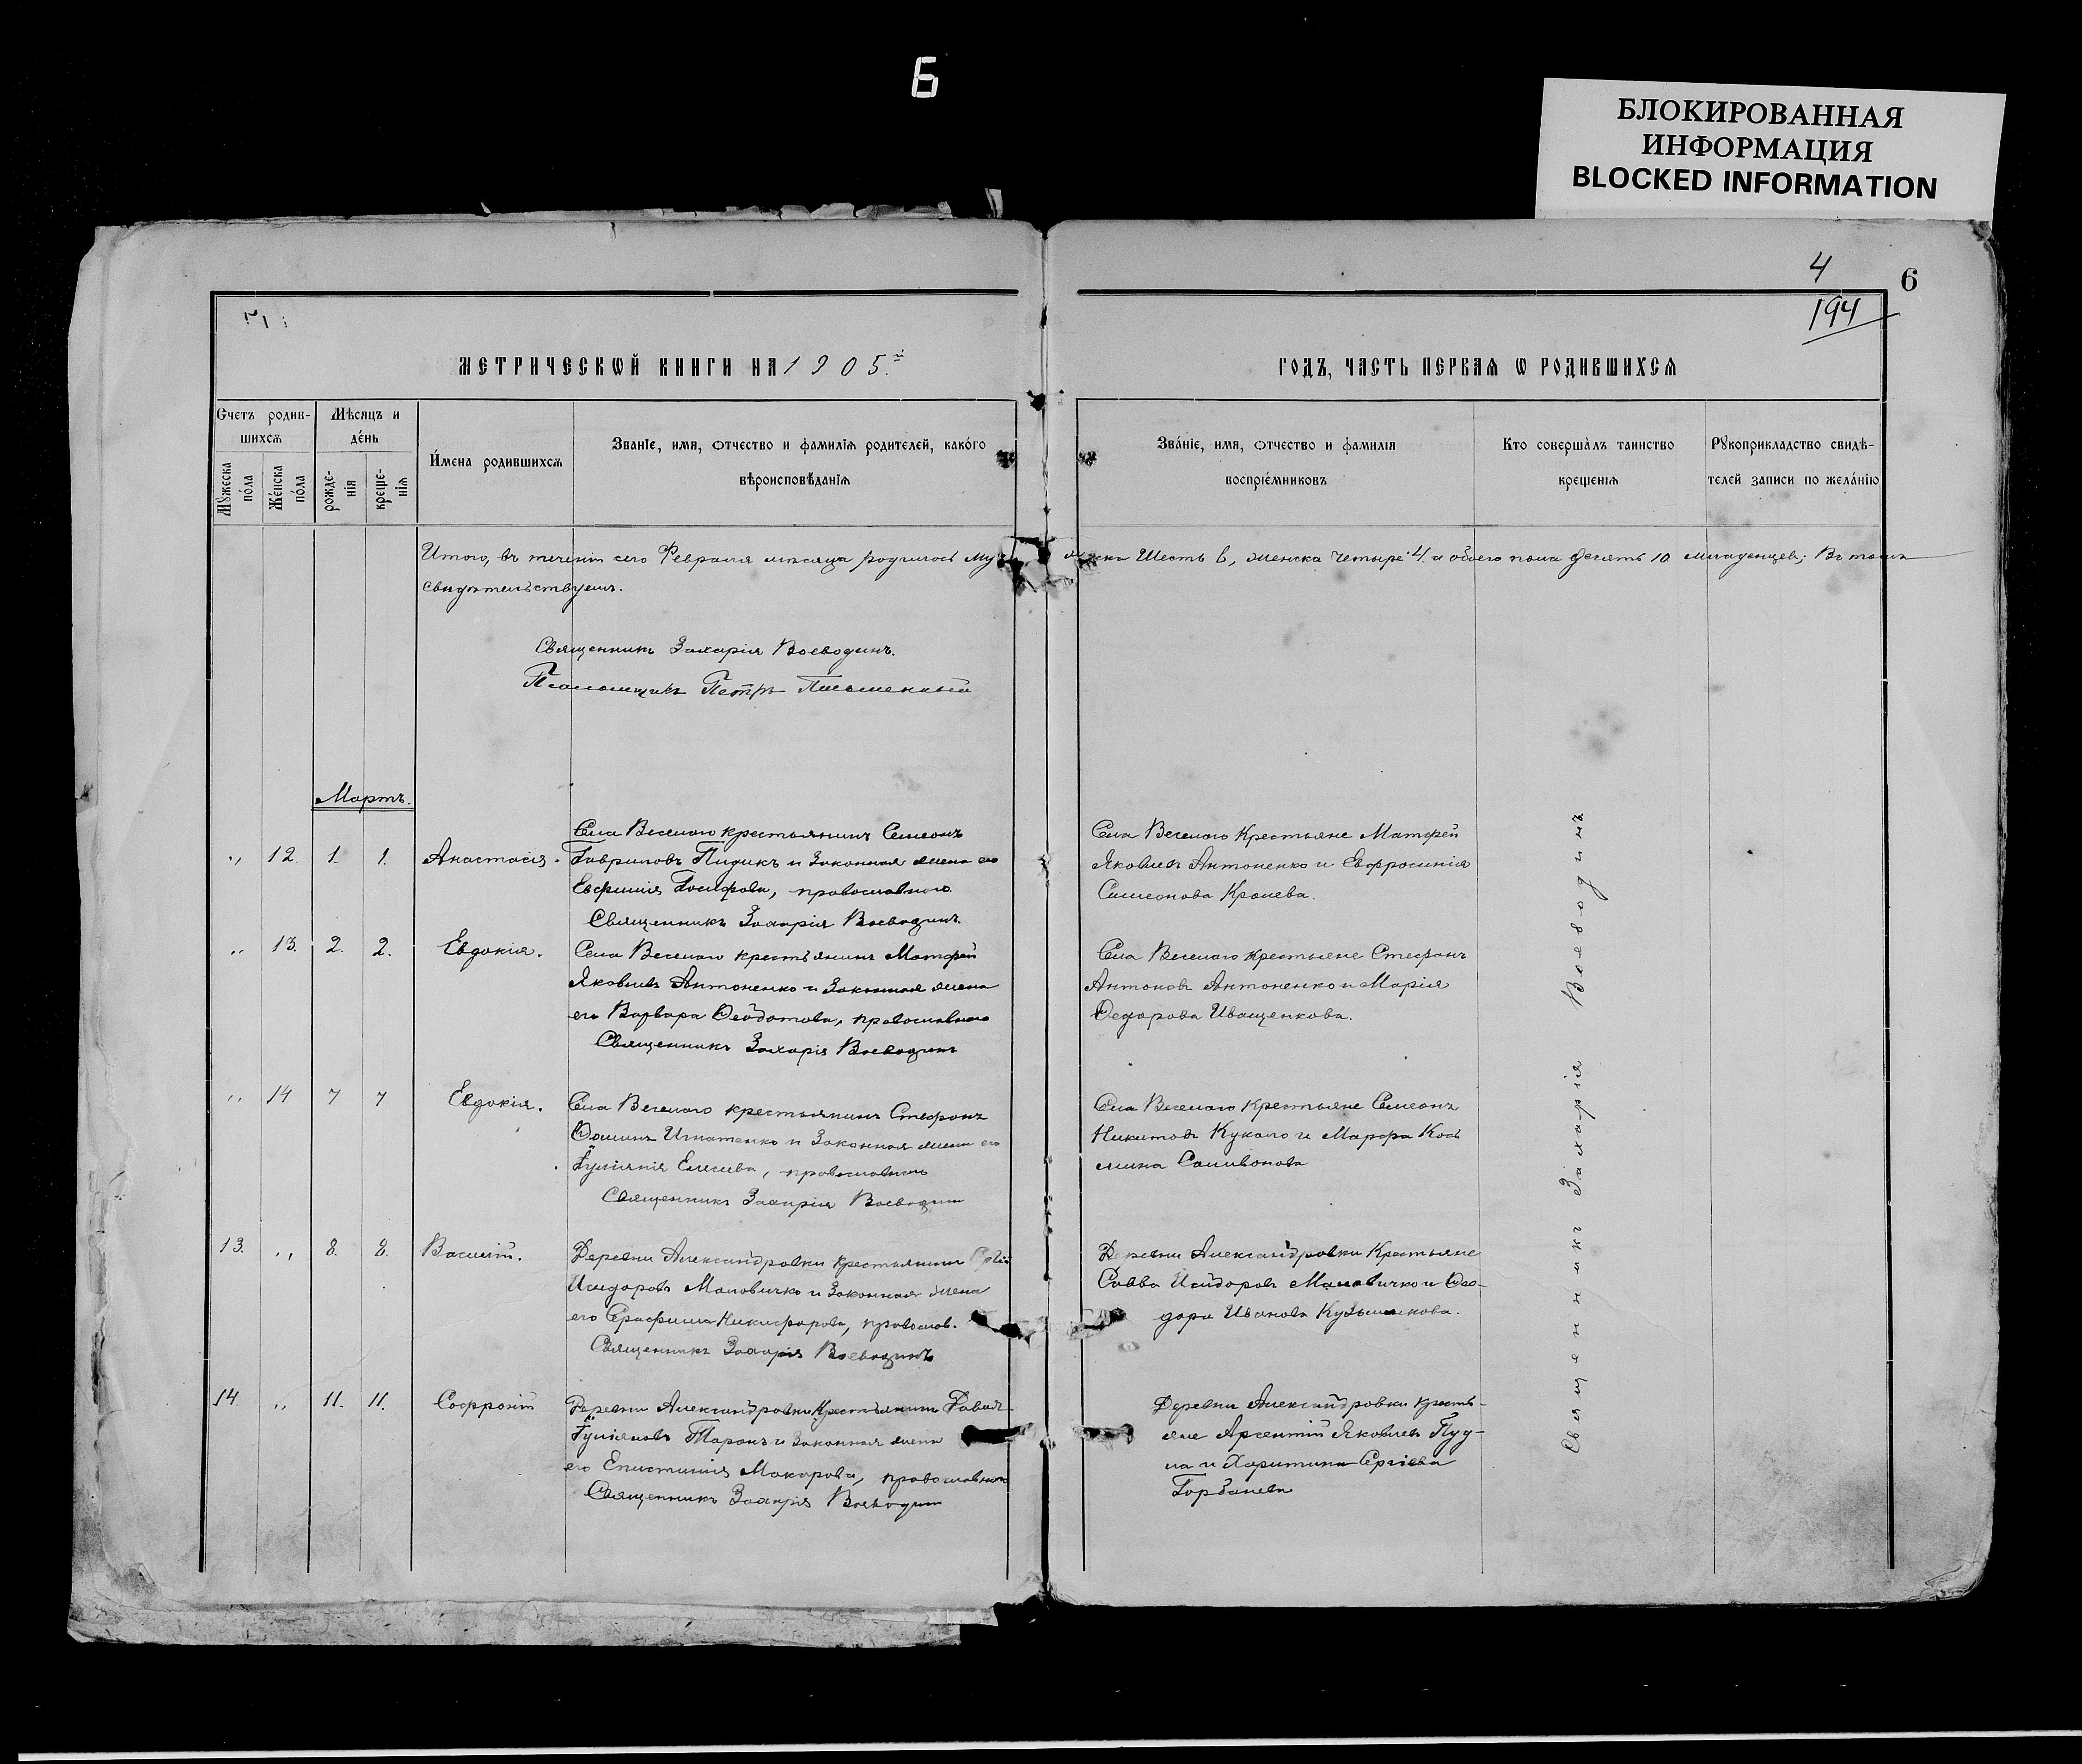 6
БЛОКИРОВАННАЯ
ИНФОРМАЦИЯ
BLOCKED INFORMATION
4
6
194
МЕТРИЧЕСКѠЙ КНИГИ НА 1905.й
ГОДЪ, ЧАСТЬ ПЕРВАѦ Ѡ РОДИВШИХСѦ
Счетъ родив-
шихсѧ
Мѣсяцъ и
де́нь
Мꙋжеска
по́ла
Же́нска
по́ла
рожде-
нія
креще-
нія
И́мена родившихсѧ
Званіе, имя, ѻтчество и фамилія родителей, како́го
вѣроисповѣданіѧ
Зва́ніе, имя, ѻтчество и фамилія
воспріе́мниковъ
Кто соверша̀лъ таинство
крещеніѧ
Рꙋкоприкладство свидѣ-
телей записи по жела́нію
Итого, въ теченіи сего Февраля мѣсяца родилось Шесть 6, женска четыре 4. а обоего пола десять 10 младенцев; Въ томъ
свидѣтельствуемъ.
Священникъ Захарія Воеводинъ.
Псаломщикъ Петръ Письменный
Мартъ.
" 12. 1. 1. Анастасія.
Села Веселаго крестьянинъ Симеонъ
Гавриловъ Пидикъ и Законная жена его
Евфимія Іосифова, православнаго
Священникъ Захарія Воеводинъ.
Села Веселаго Крестьяне Матфей
Яковлевъ Антоненко и Евфросинія
Симеонова Кролева.
" 13. 2. 2. Евдокія.
Села Веселаго крестьянинъ Матфей
Яковлевъ Антоненко и Законная жена
его Варвара Ѳеодотова, православнаго
Священникъ Захарія Воеводинъ
Села Веселаго крестьяне Стефанъ
Антоновъ Антоненко и Марія
Ѳедорова Иващенкова.
" 14 7 7 Евдокія.
Села Веселаго крестьянинъ Стефанъ
Ѳоминъ Игнатенко и Законная жена его
Іуліянія Елисеева, православнаго
Священникъ Захарія Воеводинъ
Села Веселаго Крестьяне Симеонъ
Никитовъ Кукало и Марфа Кось
мина Саливонова
13. " 8. 8. Василій.
Деревни Александровки крестьянинъ Сергій
Исидоровъ Маловичко и Законная жена
его Серафима Никифорова, православ.
Священникъ Захарія Воеводинъ
Деревни Александровки Крестьяне
Савва Исидоровъ Маловичко и Ѳео-
дора Иванова Кузьменкова.
14. " 11. 11. Софроній
Деревни Александровки Крестьянинъ Давидъ
Іуліановъ Таранъ и Законная жена
его Епистимія Макарова, православнаго
Священникъ Захарія Воеводинъ
Деревни Александровки кресть-
яне Арсентій Яковлевъ Пуд-
ла и Харитина Сергіева
Горбанева
Священникъ Захарія Воеводинъ